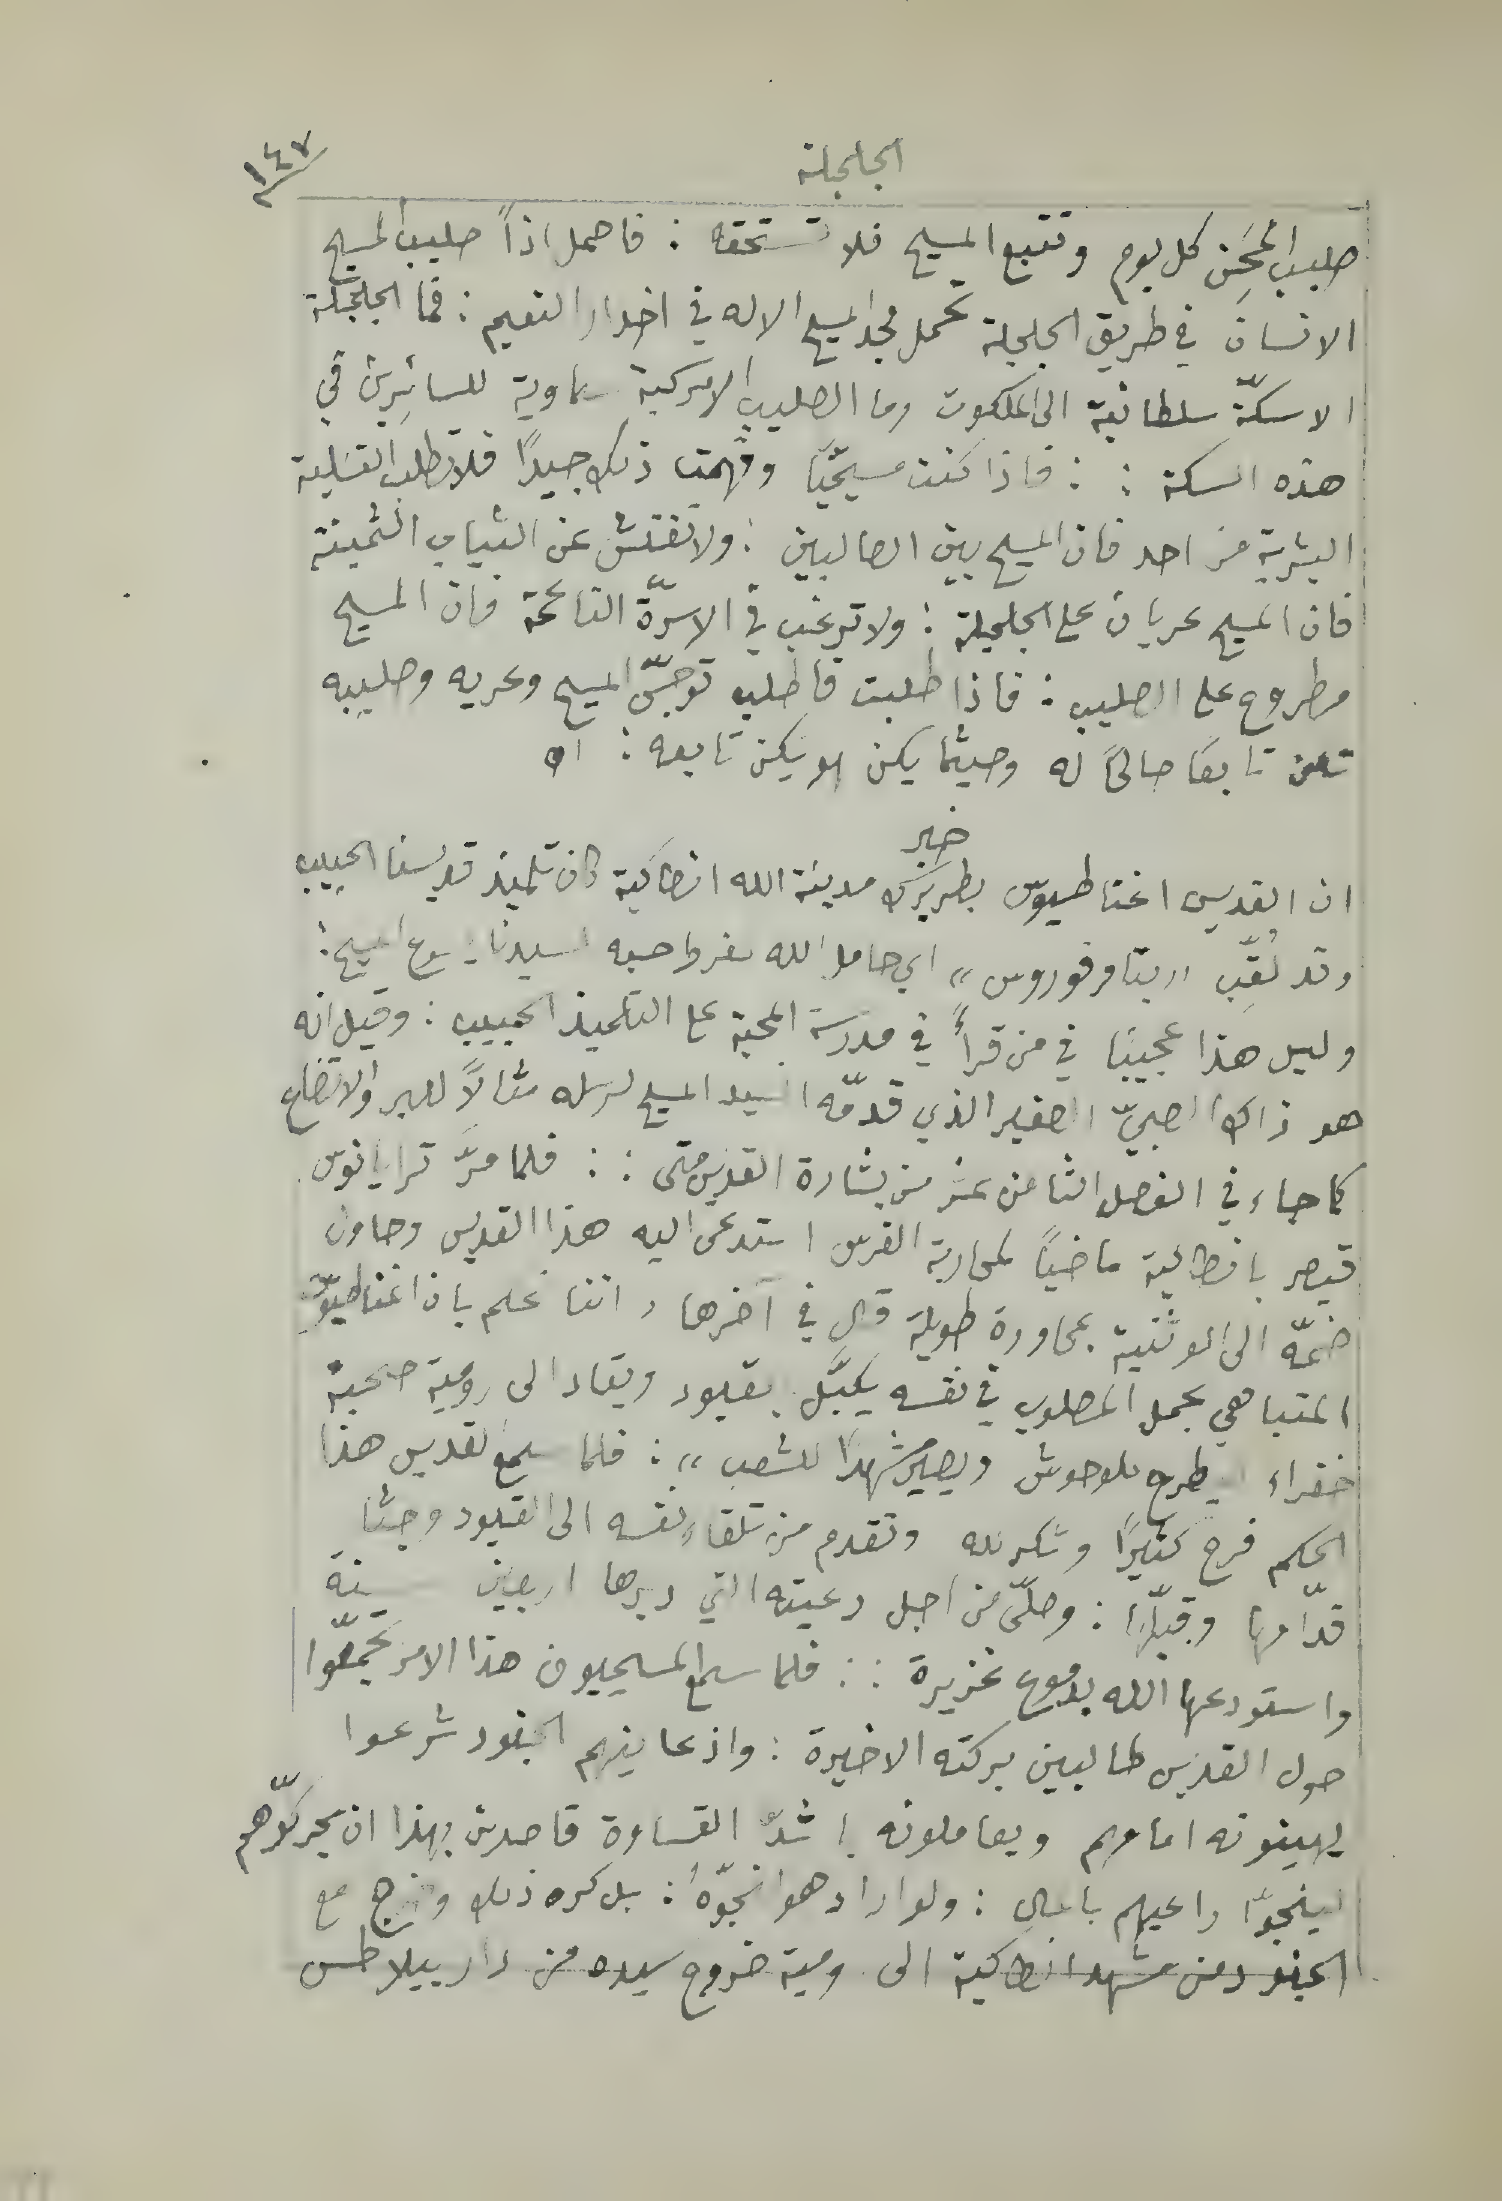 الجلجلة
١٤٧
صليب المحَن كل يوم وتتبع المسيح فلا تستحقه : فاحمل اذاً صليب المسيح
الانسان في طريق الجلجلة تحمل مجد المسيح الاله في اخدار النعيم : فما الجلجلة
الا سكّة سلطانية الى الملكوت وما الصليب الا مركبة سماوية للسائرين في
هذه السكة : : فاذا كنت مسيحيًا وفهمت ذلك جيدًا فلا تطلب التسلية
البشرية من احد فان المسيح بين الصالبين : ولا تفتش عن الثياب الثمينة
فان المسيح عريان على الجلجلة : ولا ترغب في الاسرّة الناعمة فان المسيح
مطروح على الصليب : فاذا طلبت فاطلب توجّع المسيح وعريه وصليبه
تكن تابعًا صالحًا له وحيثما يكن هو يكن تابعه : اه
خبر
ان القديس اغناطيوس بطريرك مدينة الله انطاكية كان تلميذ قديسنا الحبيب
وقد لُقِّب ,, بثاوفوروس ,, اي حامل الله لفرط حبه لسيدنا يسوع المسيح :
وليس هذا عجيبًا في من قرأ في مدرسة المحبة على التلميذ الحبيب : وقيل انه
هو ذاك الصبيّ الصغير الذي قدمّه السيد المسيح لرسله مثالاً للبر والاتضاع
كما جاء في الفصل الثامن عشر من بشارة القديس متى : : فلما مرَّ ترايانوس
قيصر بانطاكية ماضيًا لمحاربة الفرس استدعى اليه هذا القديس وحاول
ضمّه الى الوثنية بمحاورة طويلة قال في آخرها ,, اننا نحلم بان اغناطيوس
المتباهي بحمل المصلوب في نفسه يكبَّل بقيود ويقاد الى رومية صحبة
خفراء ليطرح للوحوش ويصير مشهدًا للشعب ,, : فلما سمع القديس هذا
الحكم فرح كثيرًا وشكر لله وتقدم من تلقاء نفسه الى القيود وجثا
قدّامها وقبّلها : وصلّى من اجل رعيته التي دبرها اربعين سنة
واستودعها الله بدموع غزيرة : : فلما سمع المسيحيون هذا الامر تجمعّوا
حول القديس طالبين بركته الاخيرة : واذ عاينهم الجنود شرعوا
يهينونه امامهم ويعاملونه باشدّ القساوة قاصدين بهذا ان يحركّوهم
لينجوّا راعيهم بالمال : ولو اراد هو انجوّهُ : بل كره ذلك وخرج مع
الجنود من مشهد انطاكية الى رومية خروج سيده من دار بيلاطس